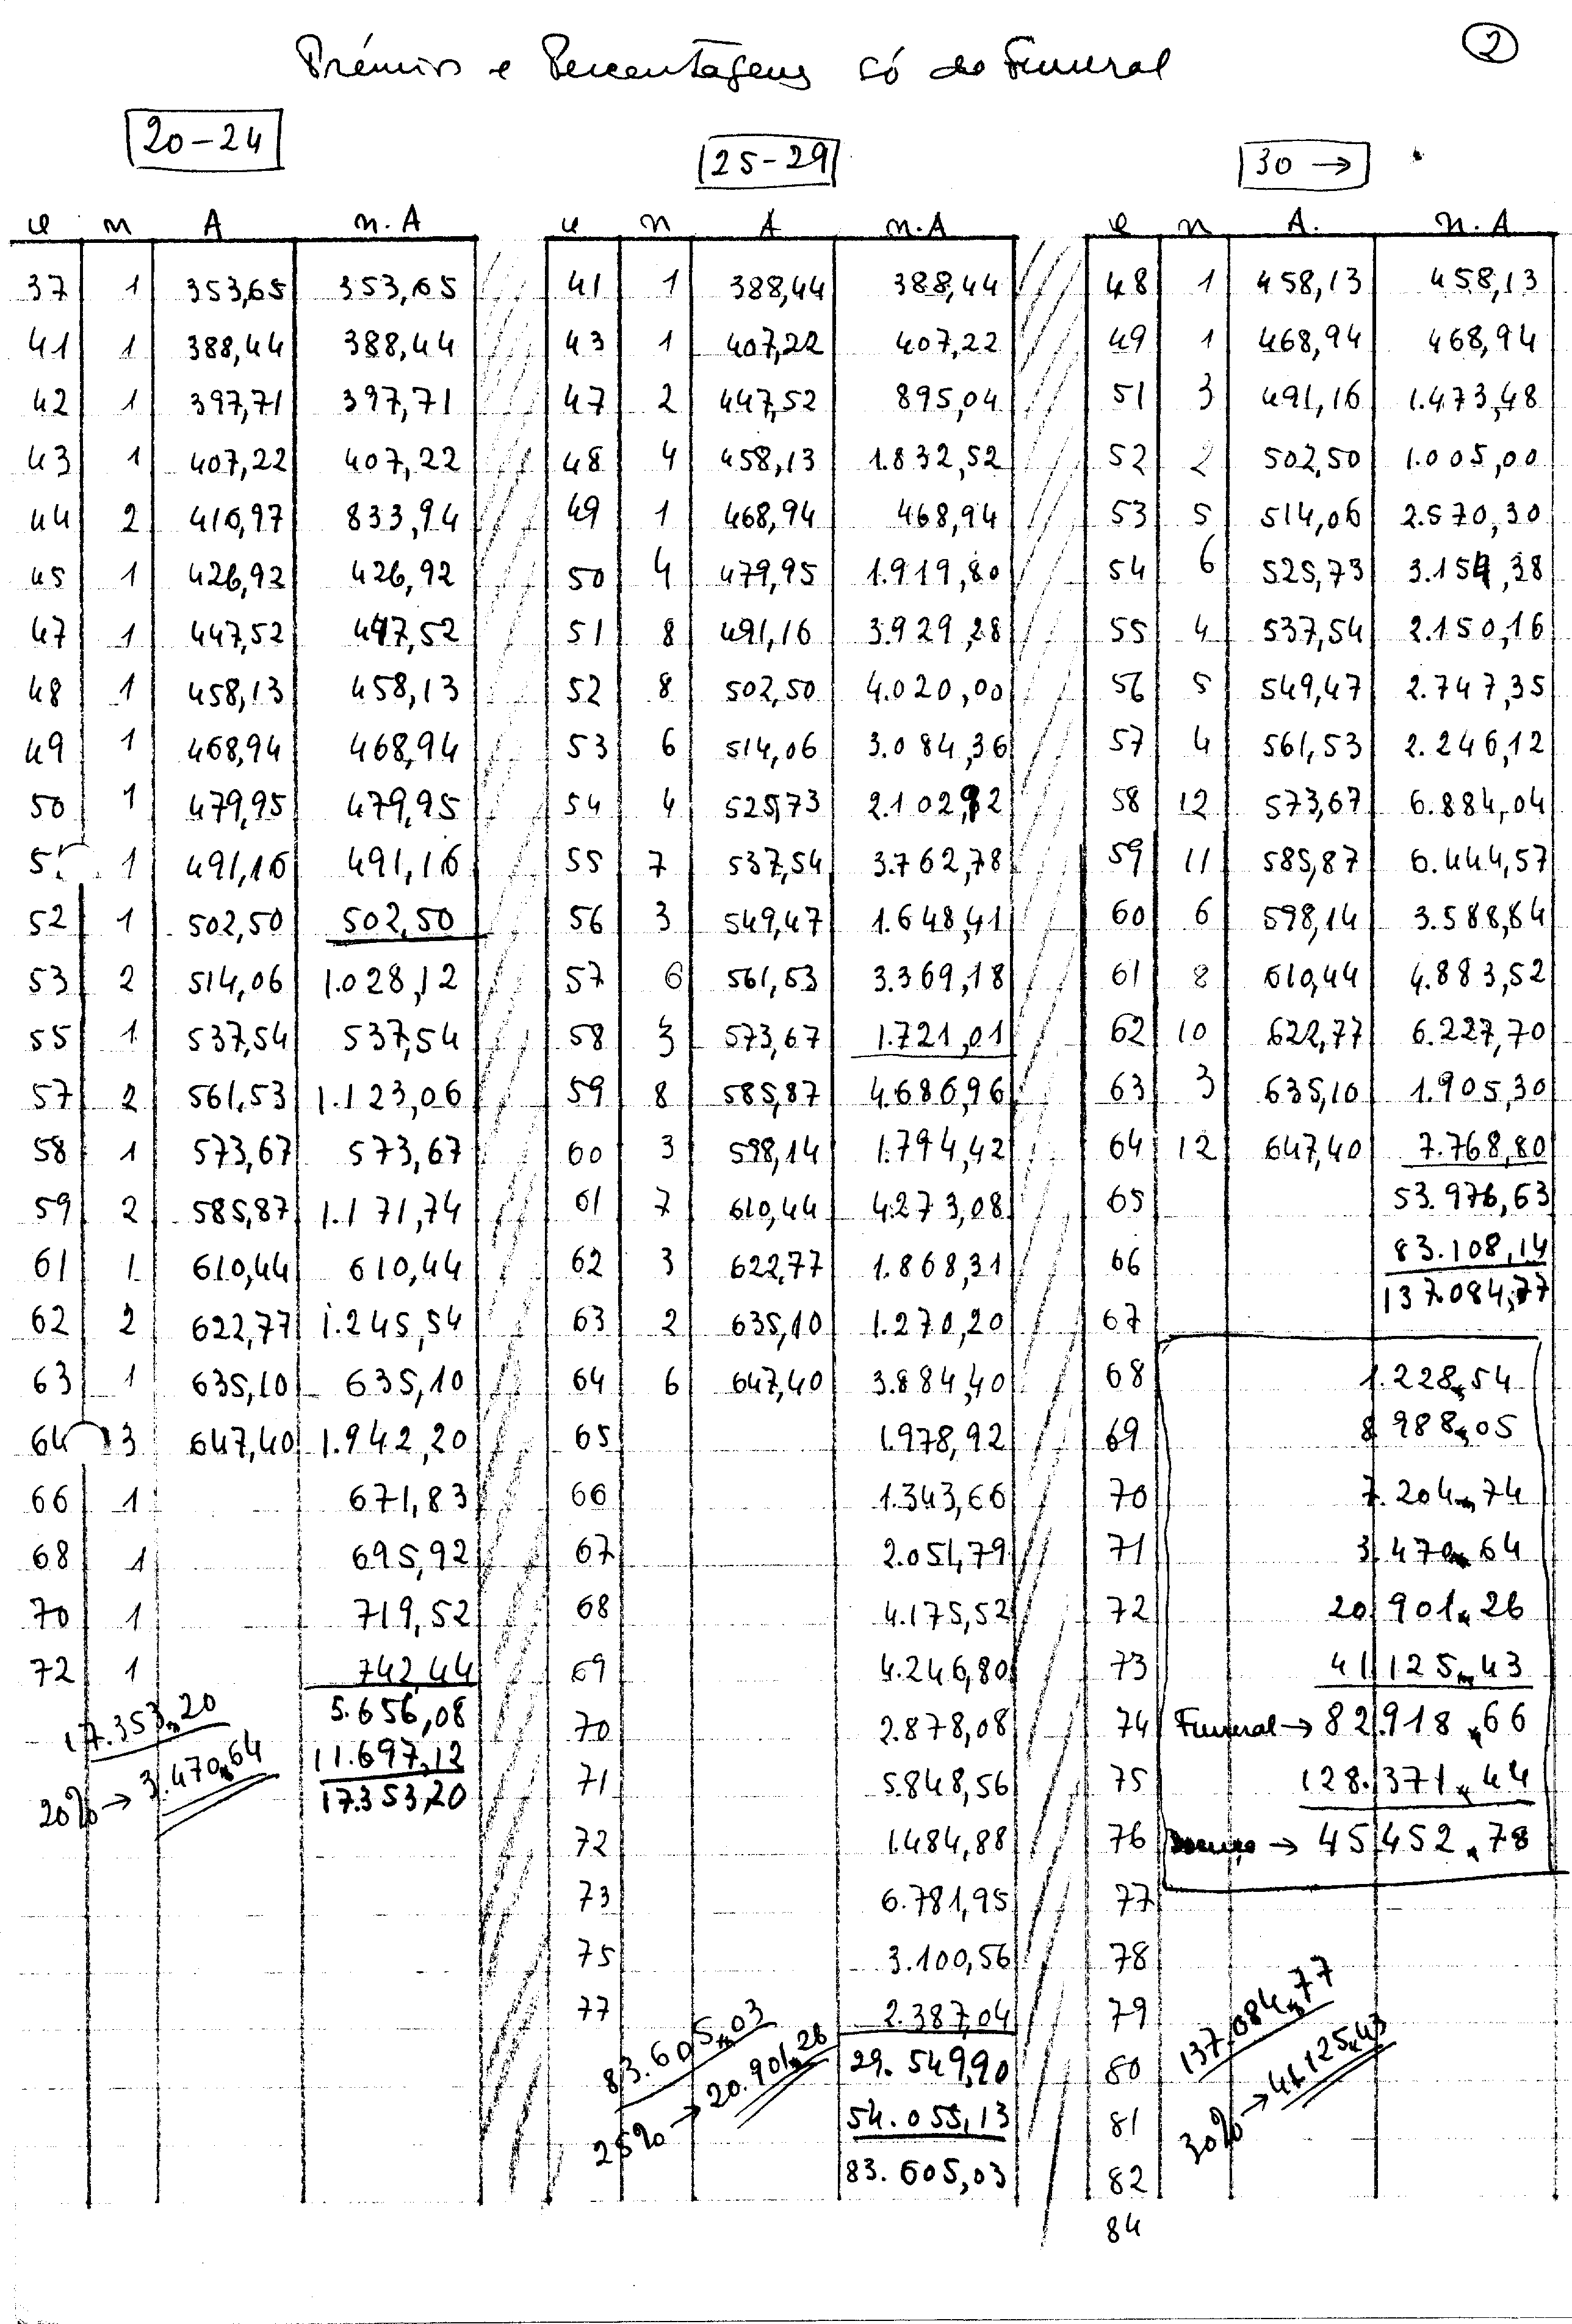 2
Prémios e Percentagens só do Funeral
20-24
25-29
30 →
e n A n.A e n A n.A e n A. n.A
37 1 353,65 353,65 41 1 388,44 388,44 48 1 458,13 458,13
41 1 388,44 388,44 43 1 407,22 407,22 49 1 468,94 468,94
42 1 397,71 397,71 47 2 447,52 895,04 51 3 491,16 1.473,48
43 1 407,22 407,22 48 4 458,13 1.832,52 52 2 502,50 1.005,00
44 2 416,97 833,94 49 1 468,94 468,94 53 5 514,06 2.570,30
45 1 426,92 426,92 50 4 479,95 1.919,80 54 6 525,73 3.154,38
47 1 447,52 447,52 51 8 491,16 3.929,28 55 4 537,54 2.150,16
48 1 458,13 458,13 52 8 502,50 4.020,00 56 5 549,47 2.747,35
49 1 468,94 468,94 53 6 514,06 3.084,36 57 4 561,53 2.246,12
50 1 479,95 479,95 54 4 525,73 2.102,92 58 12 573,67 6.884,04
5 1 491,16 491,16 55 7 537,54 3.762,78 59 11 585,87 6.444,57
52 1 502,50 502,50 56 3 549,47 1.648,41 60 6 598,14 3.588,84
53 2 514,06 1.028,12 57 6 561,53 3.369,18 61 8 610,44 4.883,52
55 1 537,54 537,54 58 3 573,67 1.721,01 62 10 622,77 6.227,70
57 2 561,53 1.123,06 59 8 585,87 4.686,96 63 3 635,10 1.905,30
58 1 573,67 573,67 60 3 598,14 1.794,42 64 12 647,40 7.768,80
59 2 585,87 1.171,74 61 7 610,44 4.273,08 65 53.976,63
61 1 610,44 610,44 62 3 622,77 1.868,31 66 83.108,14
137.084,77
62 2 622,77 1.245,54 63 2 635,10 1.270,20 67
63 1 635,10 635,10 64 6 647,40 3.884,40 68 1.228,54
64 3 647,40 1.942,20 65 1.978,92 69 8 988,05
66 1 671,83 66 1.343,66 70 7.204,74
68 1 695,92 67 2.051,79 71 3.470,64
70 1 719,52 68 4.175,52 72 20 901,26
72 1 742,44 69 4.246,80 73 41 125,43
17.353,20 5.656,08 70 2.878,08 74 Funeral → 82.918,66
20% → 3.470,64 11.697,12 71 5.848,56 75 128.371,44
17.353,20
72 1.484,88 76 → 45 452,78
73 6.781,95 77
75 3.100,56 78
77 2.387,04 79
83.605,03 29.549,90 80 137.084,77
25% → 20.901,26 54.055,13 81 30% → 41.125,43
83.605,03 82
84